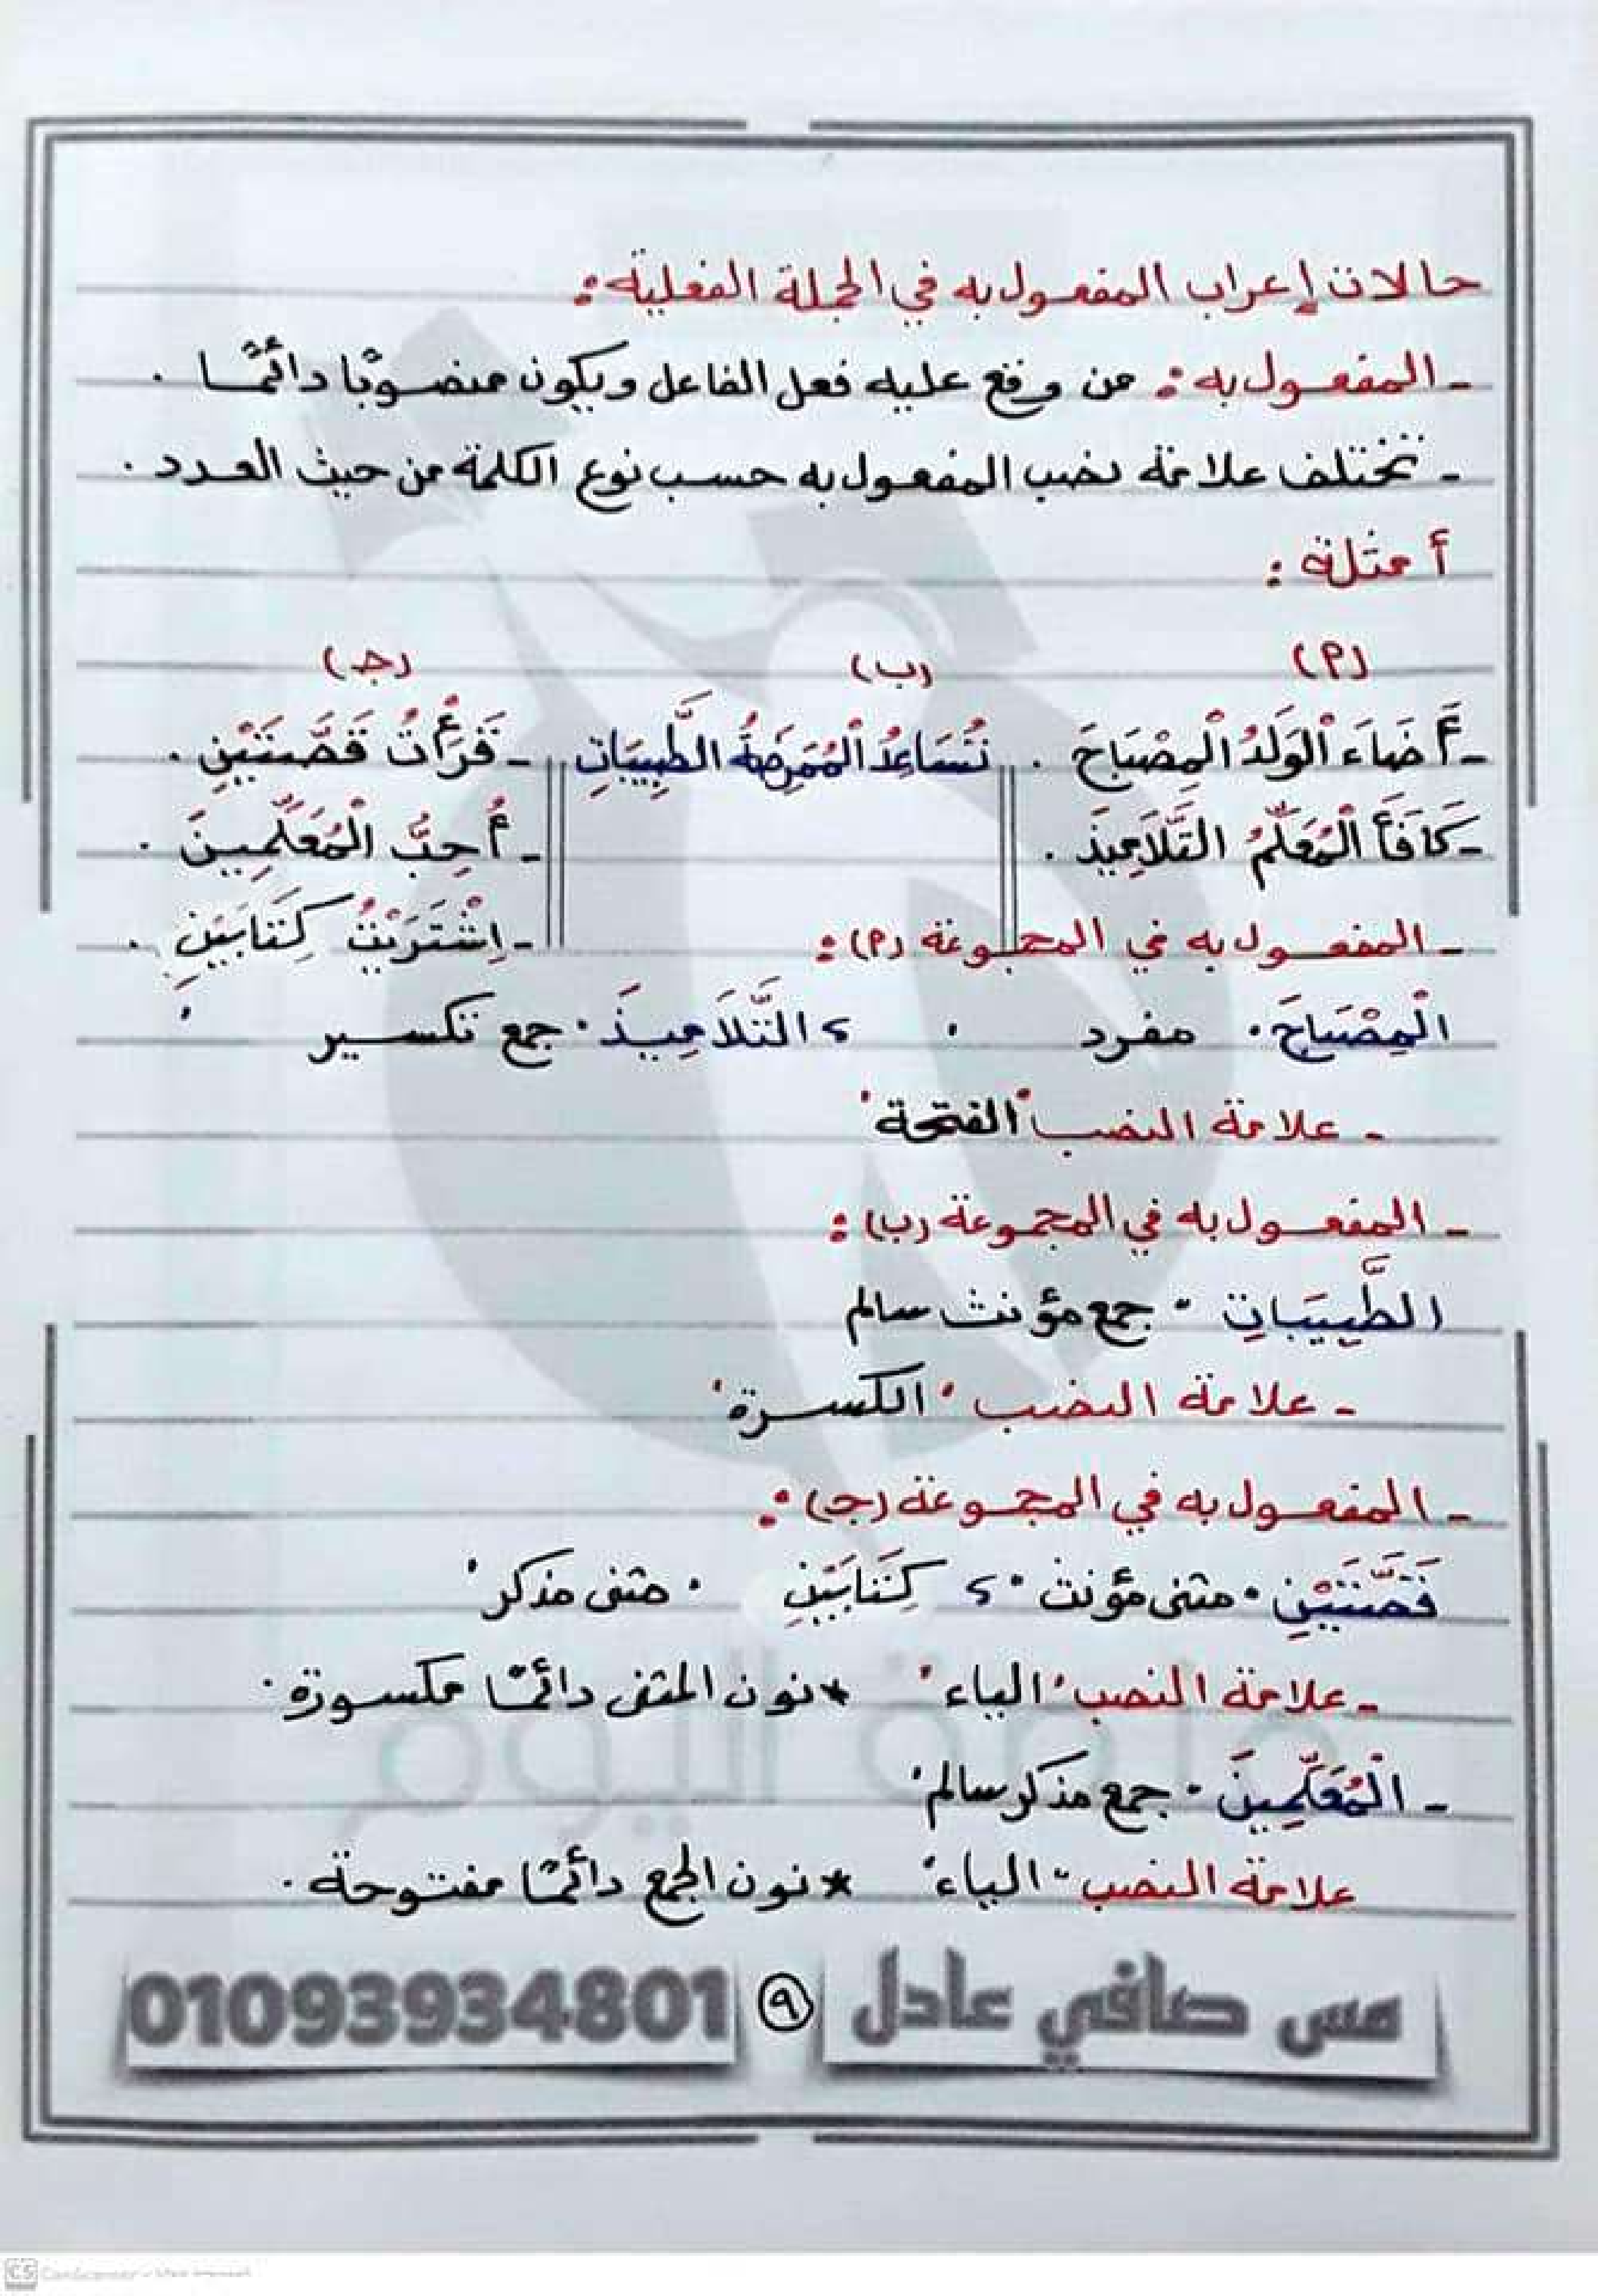 حالات إعراب المفعول به في الجملة الفعلية :
- المفعول به : من وقع عليه فعل الفاعل ويكون منصوبًا دائمًا .
- تختلف علامة نصب المفعول به حسب نوع الكلمة من حيث العدد .
أمثلة :
(أ) (ب) (جـ)
- أَضَاءَ الْوَلَدُ الْمِصْبَاحَ . تُسَاعِدُ الْمُمَرِضَةُ الطَّبِيبَاتِ - قَرَأْتُ قَصَّتَيْنِ .
- كَافَأَ الْمُعَلِّمُ التَّلَامِيذَ . - أُحِبُّ الْمُعَلِّمِينَ .
- المفعول به في المجموعة (أ) : - اِشْتَرَيْتُ كِتَابَيْنِ .
الْمِصْبَاحَ " مفرد " ، التَّلَامِيذَ " جمع تكسير "
- علامة النصب "الفتحة"
- المفعول به في المجموعة (ب) :
الطَّبِيبَاتِ " جمع مؤنث سالم
- علامة النصب "الكسرة"
- المفعول به في المجموعة (جـ) :
قَصَّتَيْنِ " مثنى مؤنث " ، كِتَابَيْنِ " مثنى مذكر "
- علامة النصب "الياء" * نون المثنى دائمًا مكسورة .
- الْمُعَلِّمِينَ " جمع مذكر سالم "
علامة النصب "الياء" * نون الجمع دائمًا مفتوحة .
مس صافي عادل ٩ 01093934801
CS CamScanner